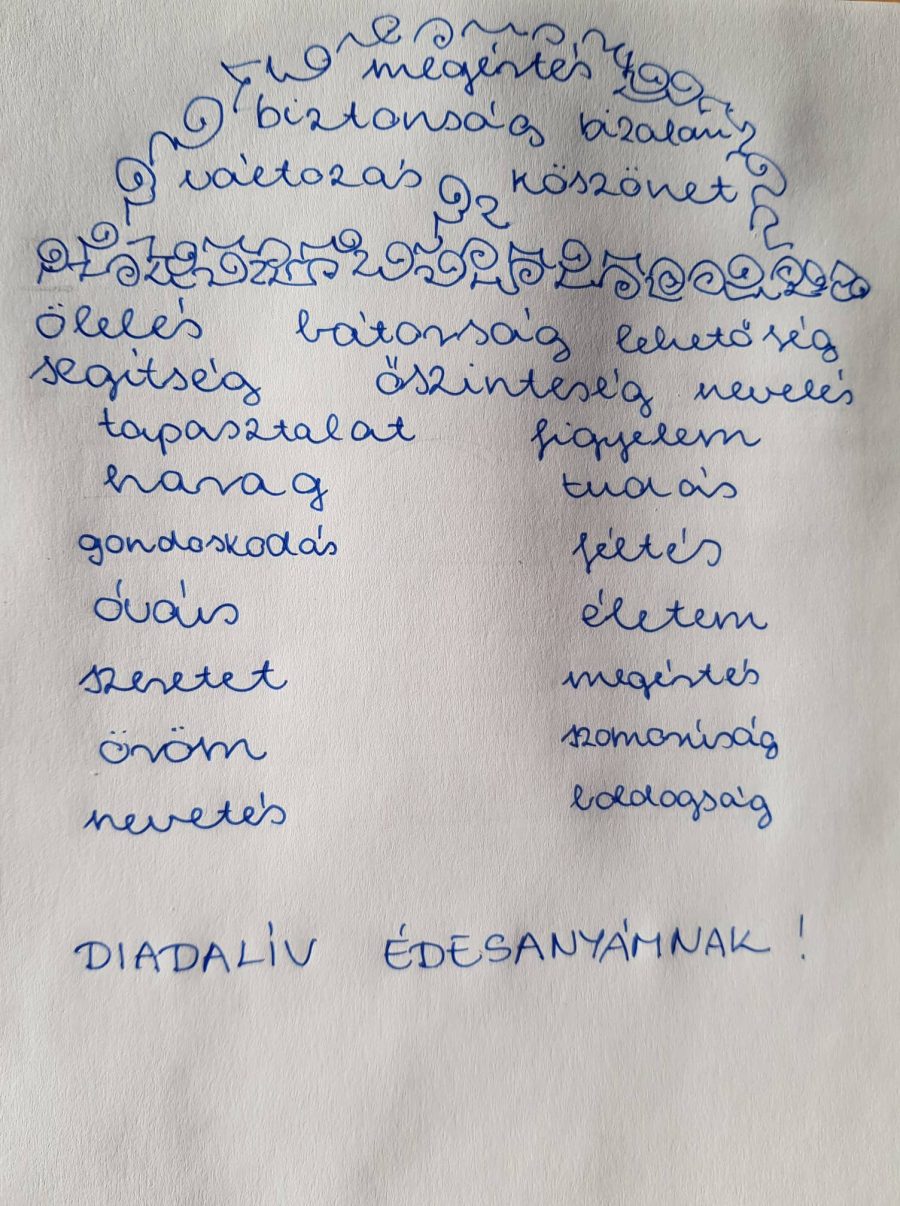 megértés
biztonság bizalom
változás köszönet
ölelés bátorság lehetőség
segítség őszinteség nevelés
tapasztalat figyelem
harag tudás
gondoskodás féltés
óvás életem
szeretet megértés
öröm szomorúság
nevetés boldogság
DIADALÍV ÉDESANYÁMNAK!